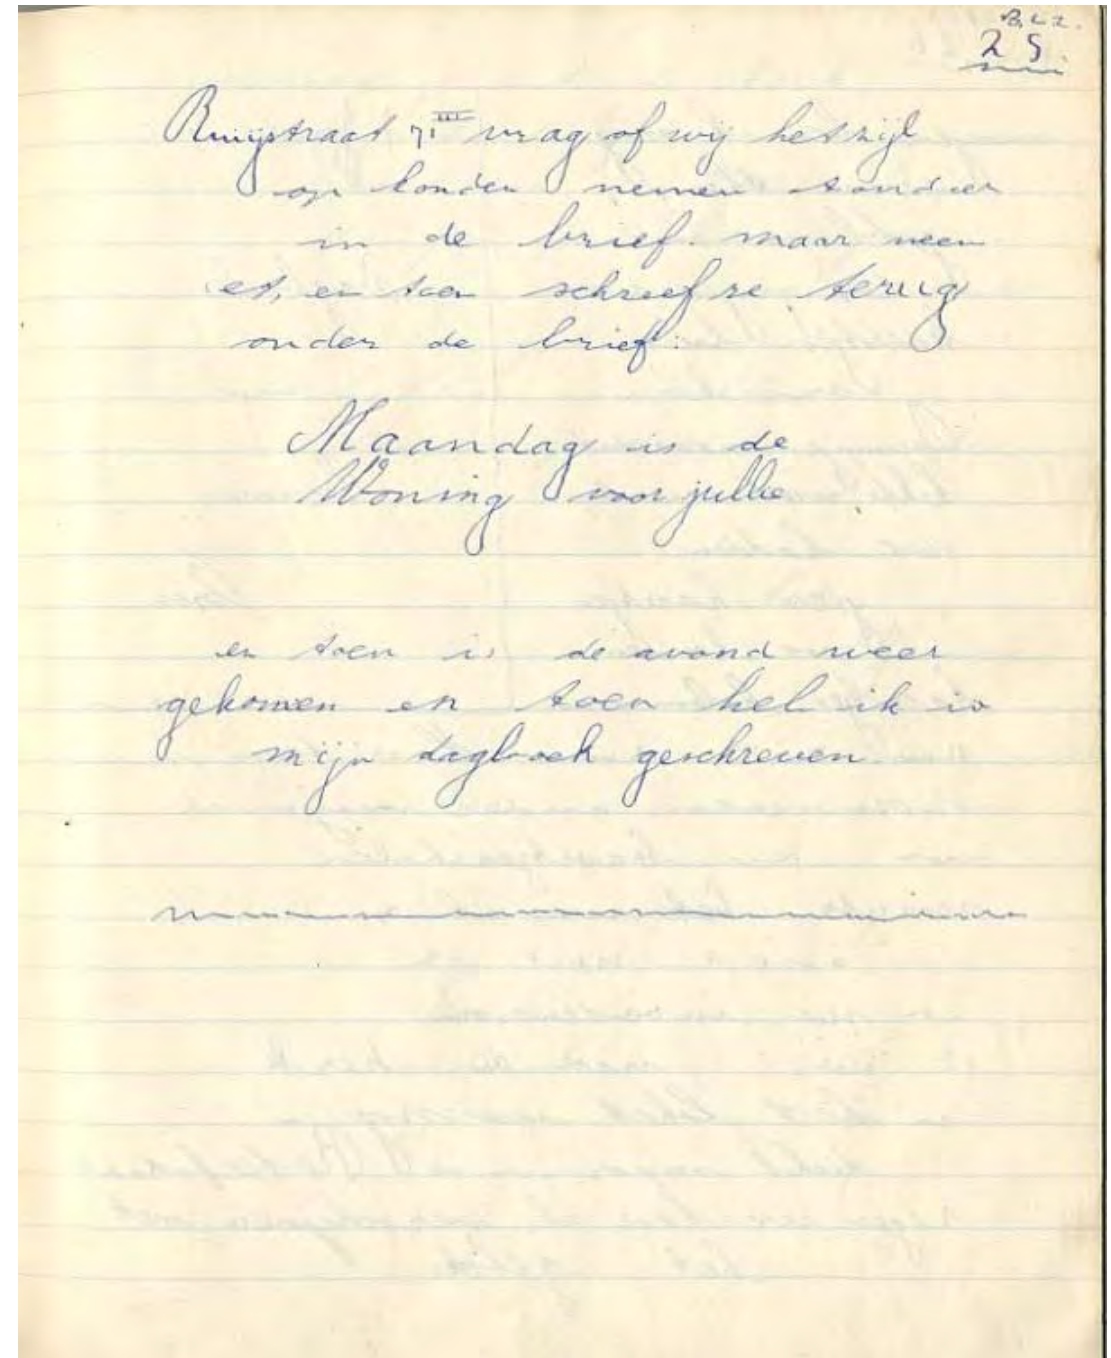 Blz.
25
straat 71 III vrag of wij het zijl
op konden nemen stond er
in de brief. maar neen
et, en toen schreef ze terug
onder de brief:
Maandag is de
Woning voor jullie
en toen is de avond weer
gekomen en toen heb ik in
mijn dagboek geschreven.